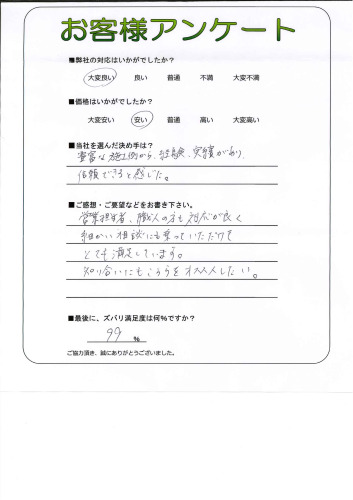 お客様アンケート
■弊社の対応はいかがでしたか?
大変良い 良い 普通 不満 大変不満
■価格はいかがでしたか?
大変安い 安い 普通 高い 大変高い
■当社を選んだ決め手は?
豊富な施工例から、経験、実績があり、
信頼できると感じた。
■ご感想・ご要望などをお書き下さい。
営業担当者、職人の方も対応が良く
細かい相談にも乗っていただけて
とても満足しています。
知り合いにもこちらをオススメしたい。
■最後に、ズバリ満足度は何%ですか?
99 %
ご協力頂き、誠にありがとうございました。